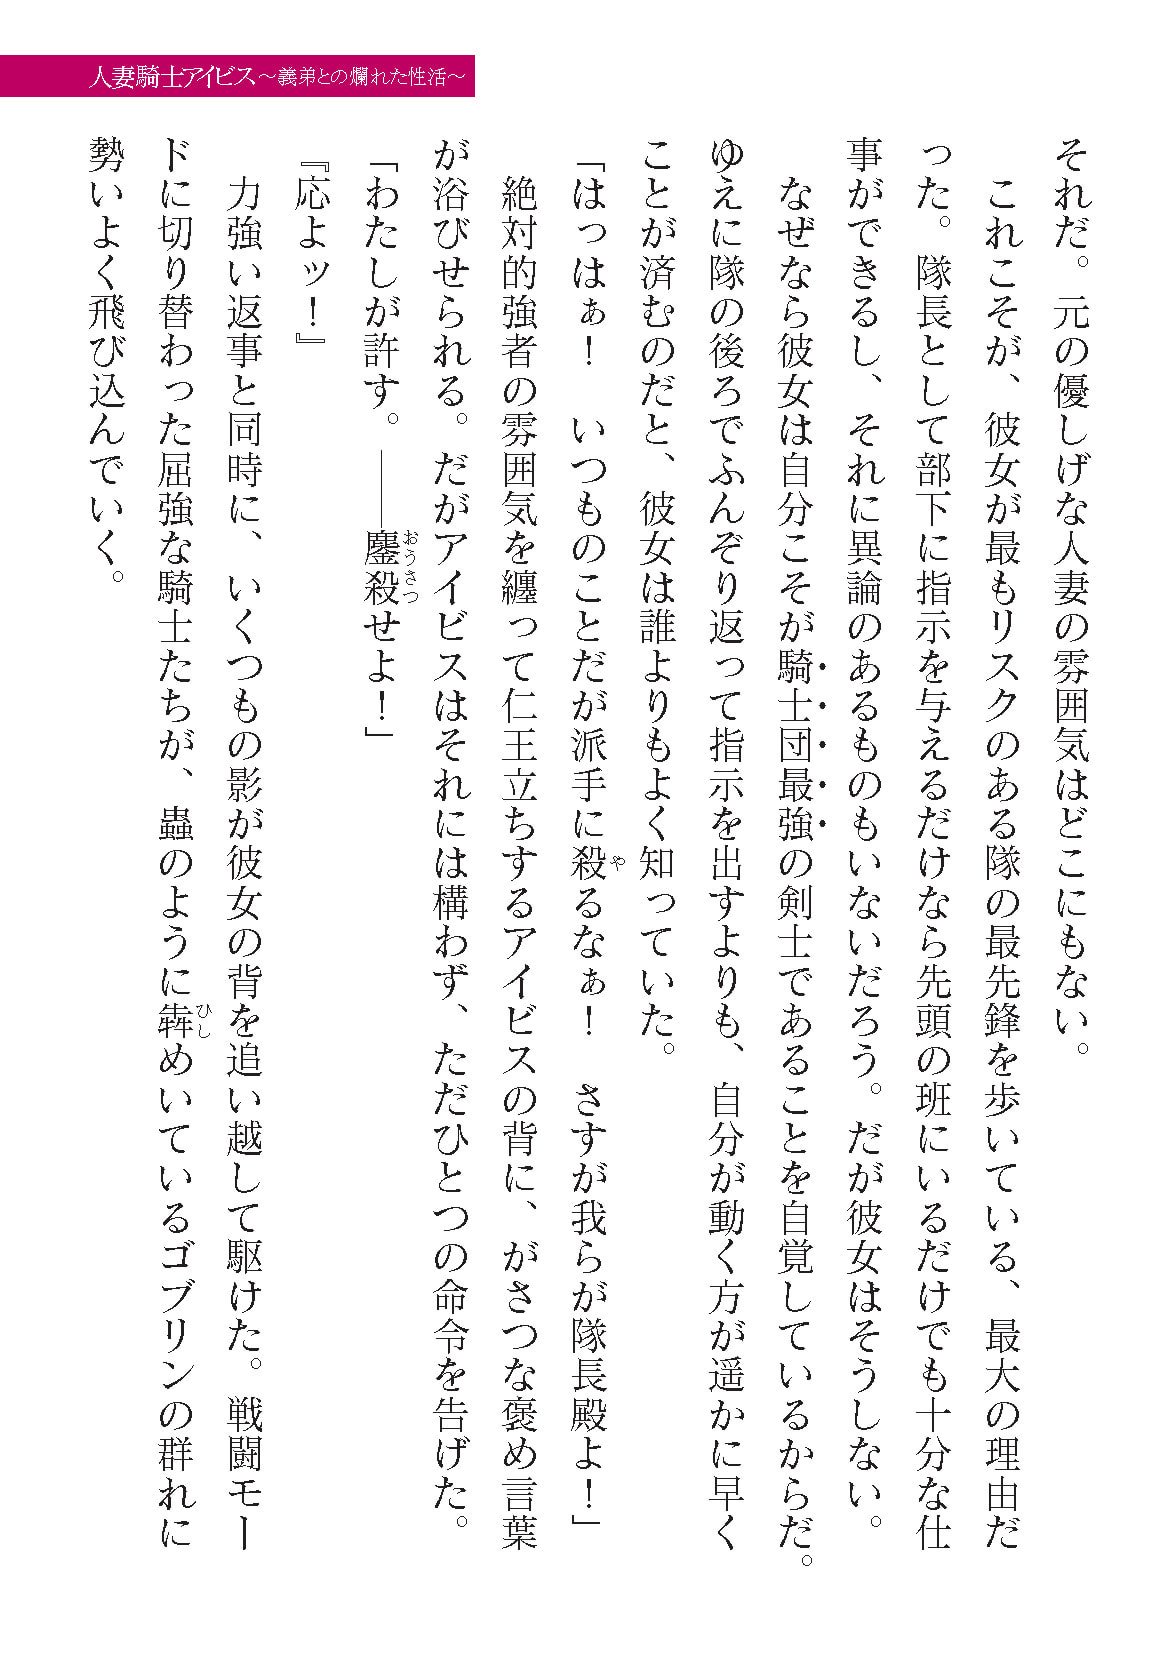 人妻騎士アイビス～義弟との爛れた性活～
それだ。元の優しげな人妻の雰囲気はどこにもない。
　これこそが、彼女が最もリスクのある隊の最先鋒を歩いている、最大の理由だ
った。隊長として部下に指示を与えるだけなら先頭の班にいるだけでも十分な仕
事ができるし、それに異論のあるものもいないだろう。だが彼女はそうしない。
　なぜなら彼女は自分こそが騎士団最強の剣士であることを自覚しているからだ。
ゆえに隊の後ろでふんぞり返って指示を出すよりも、自分が動く方が遥かに早く
ことが済むのだと、彼女は誰よりもよく知っていた。
「はっはぁ！　いつものことだが派手に殺るなぁ！　さすが我らが隊長殿よ！」
　絶対的強者の雰囲気を纏って仁王立ちするアイビスの背に、がさつな褒め言葉
が浴びせられる。だがアイビスはそれには構わず、ただひとつの命令を告げた。
「わたしが許す。――鏖殺せよ！」
『応よッ！』
　力強い返事と同時に、いくつもの影が彼女の背を追い越して駆けた。戦闘モー
ドに切り替わった屈強な騎士たちが、蟲のように犇めいているゴブリンの群れに
勢いよく飛び込んでいく。